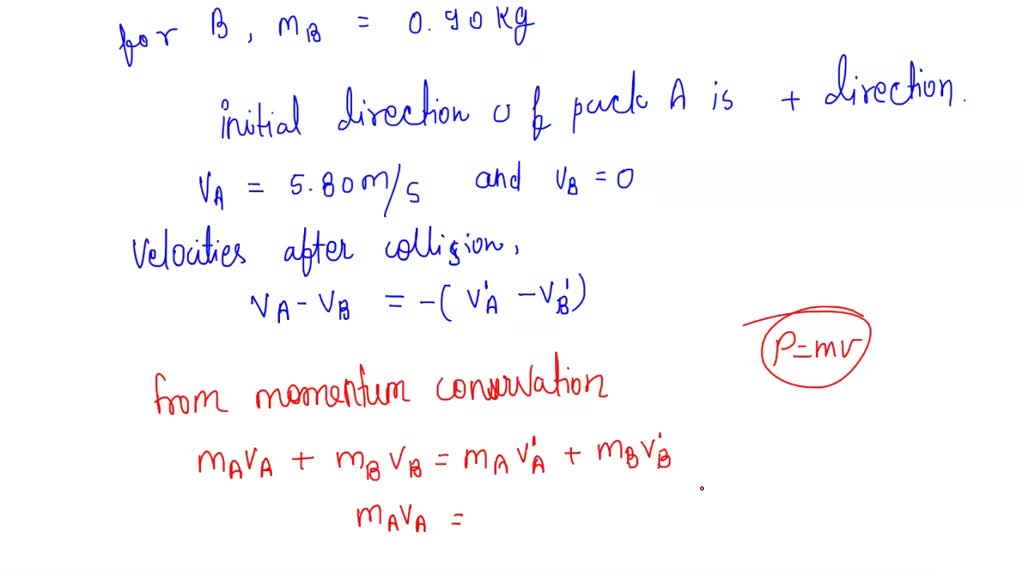 for B, mB = 0.90 kg
initial direction of puck A is + direction.
VA = 5.80m/s and VB = 0
Velocities after collision,
VA - VB = -(V'A - V'B)
P=mv
from momentum conservation
mAVA + mBVB = mAV'A + mBV'B
mAVA =